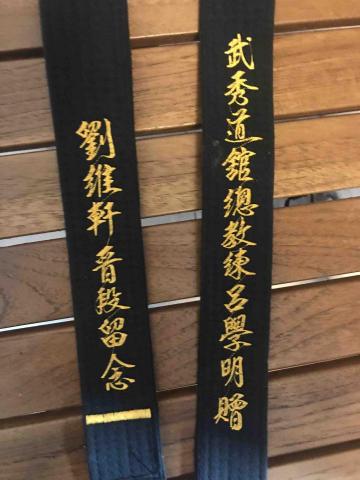 武秀道舘總教練呂學明贈
劉維軒晉段留念